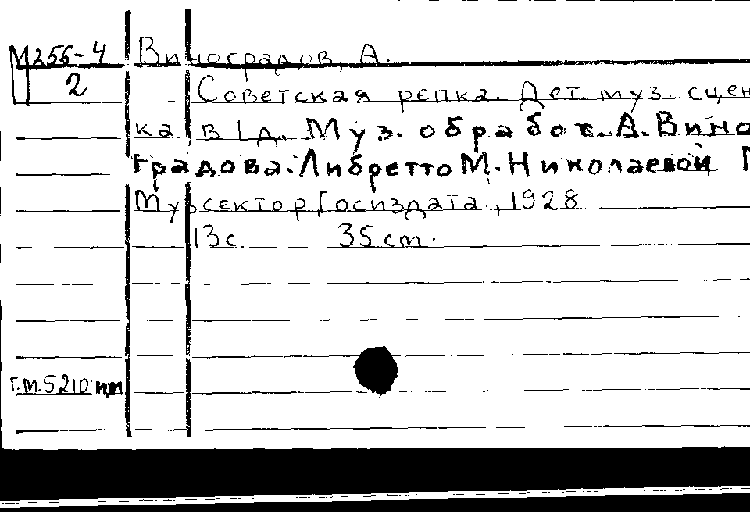 М256-4 Виноградов, А.
2 Советская репка. Дет. муз. сцен
ка в 1 д. Муз. обработ. А. Вино
градова. Либретто М. Николаевой
Музсектор Госиздата, 1928
13 с. 35 cm.
Г.М.5210 нп